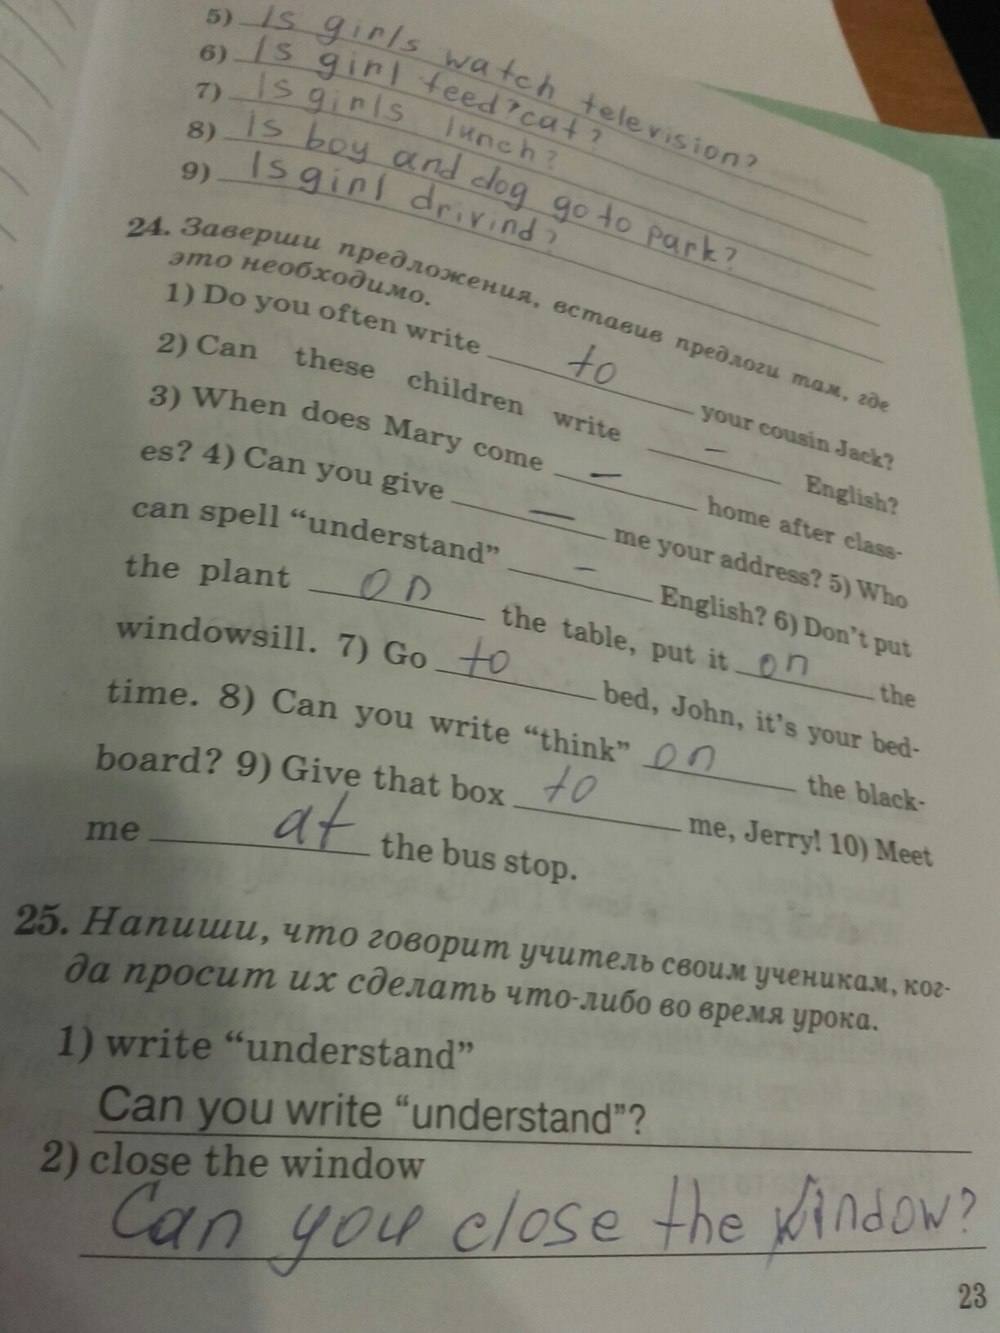 5) Is girls watch television?
6) Is girl feed?cat?
7) Is girls lunch?
8) Is boy and dog go to park?
9) Is girl drivind?
24. Заверши предложения, вставив предлоги там, где
это необходимо.
1) Do you often write to your cousin Jack?
2) Can these children write – English?
3) When does Mary come – home after class-
es? 4) Can you give – me your address? 5) Who
can spell “understand” – English? 6) Don’t put
the plant on the table, put it on the
windowsill. 7) Go to bed, John, it’s your bed-
time. 8) Can you write “think” on the black-
board? 9) Give that box to me, Jerry! 10) Meet
me at the bus stop.
25. Напиши, что говорит учитель своим ученикам, ког-
да просит их сделать что-либо во время урока.
1) write “understand”
Can you write “understand”?
2) close the window
Can you close the window?
23